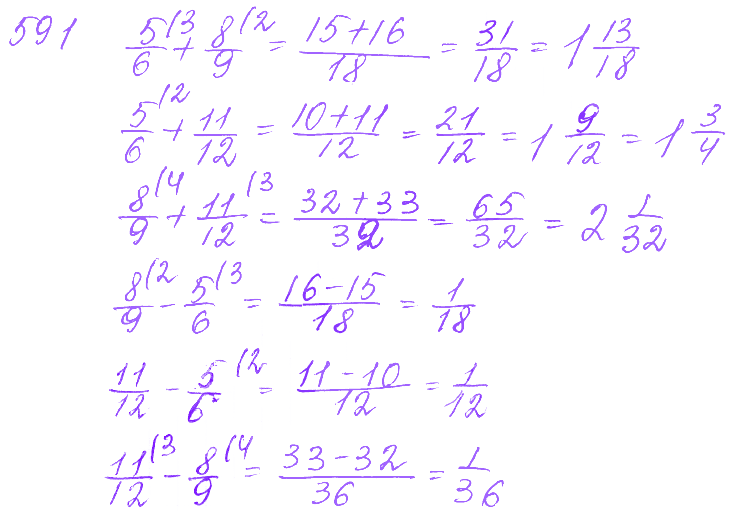 591 5/6 (3 + 8/9 (2 = (15+16)/18 = 31/18 = 1 13/18
5/6 (2 + 11/12 = (10+11)/12 = 21/12 = 1 9/12 = 1 3/4
8/9 (4 + 11/12 (3 = (32+33)/32 = 65/32 = 2 1/32
8/9 (2 - 5/6 (3 = (16-15)/18 = 1/18
11/12 - 5/6 (2 = (11-10)/12 = 1/12
11/12 (3 - 8/9 (4 = (33-32)/36 = 1/36